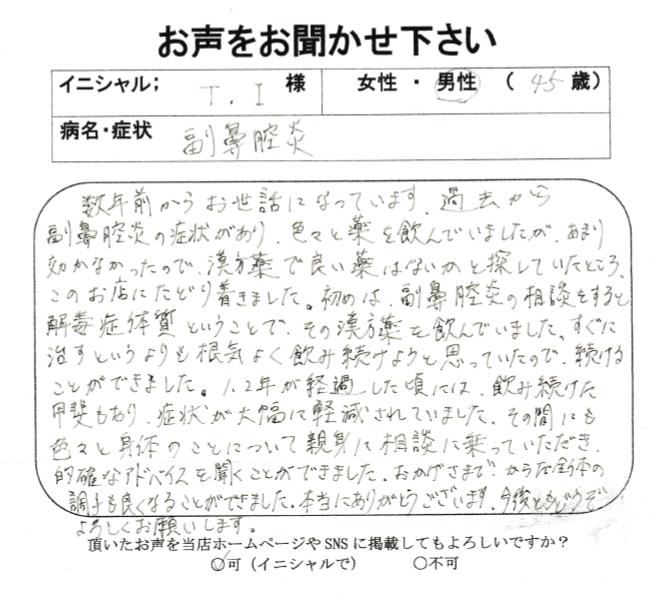 お声をお聞かせ下さい
イニシャル; T.I 様 女性・男性 ( 45 歳)
病名・症状 副鼻腔炎
数年前からお世話になっています。過去から
副鼻腔炎の症状があり、色々と薬を飲んでいましたが、あまり
効かなかったので、漢方薬で良い薬はないかと探していたところ、
このお店にたどり着きました。初めは、副鼻腔炎の相談をすると
解毒症体質ということで、その漢方薬を飲んでいました。すぐに
治すというよりも根気よく飲み続けようと思っていたので、続ける
ことができました。1、2年が経過した頃には、飲み続けた
甲斐もあり、症状が大幅に軽減されていました。その間にも
色々と身体のことについて親身に相談に乗っていただき、
的確なアドバイスを聞くことができました。おかげさまで、からだ全体の
調子も良くなることができました。本当にありがとうございます。今後ともどうぞ
よろしくお願いします。
頂いたお声を当店ホームページやSNSに掲載してもよろしいですか?
○可(イニシャルで) ○不可